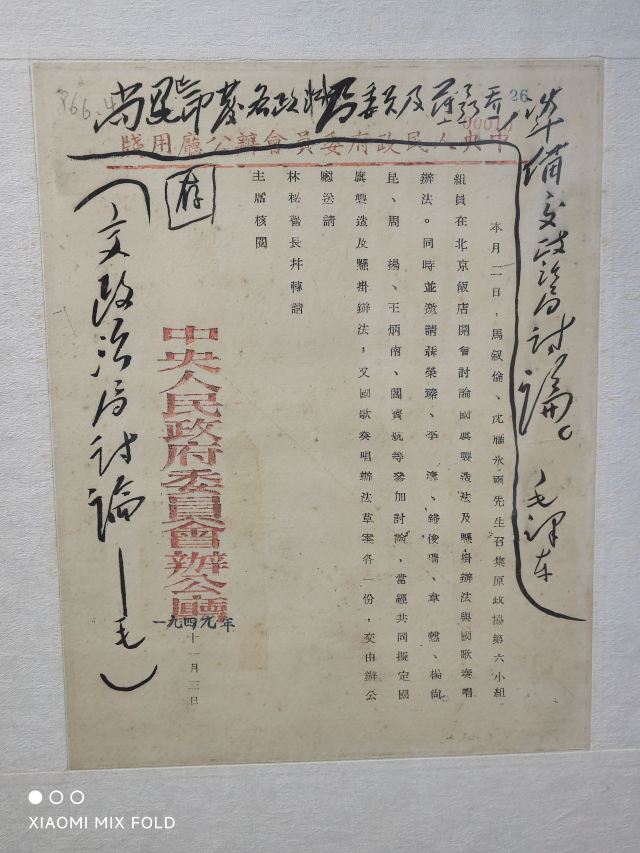 866.4
26
中央人民政府委員會辦公廳用牋
準備交政治局討論。
毛澤東
本月二日，馬叙倫、沈雁冰兩先生召集原政協第六小組
組員在北京飯店開會討論國旗製造法及懸掛辦法與國歌奏唱
辦法。同時並邀請聶榮臻、李 濤、錢俊瑞、韋 慤、楊尚
昆、周 揚、王炳南、閻寶航等參加討論，當經共同擬定國
旗製造及懸掛辦法，又國歌奏唱辦法草案各一份，交由辦公
廳送請
林秘書長并轉請
主席核閱
存
中央人民政府委員會辦公廳
一九四九年十一月三日
（交政治局討論——毛）
XIAOMI MIX FOLD